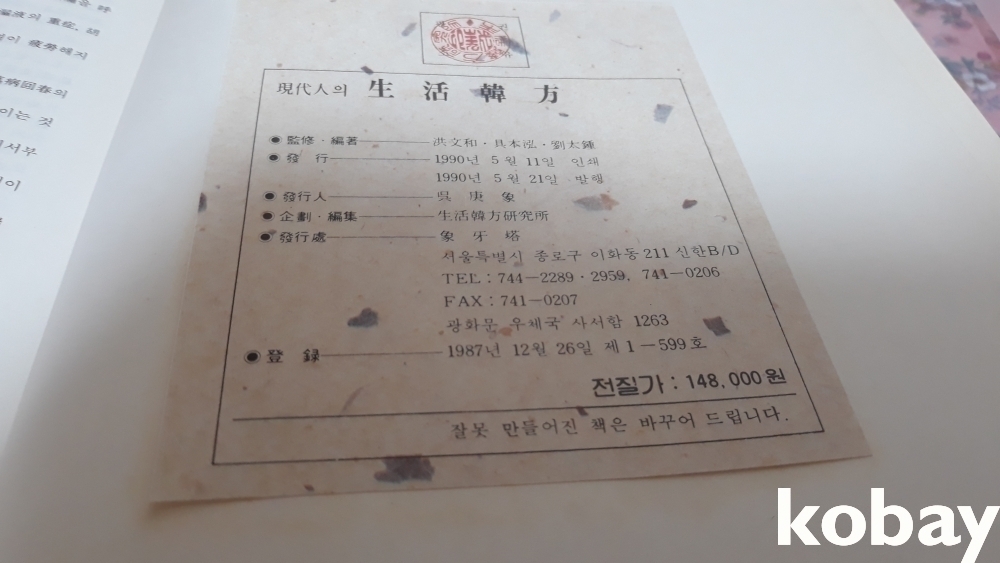 瘍液의 重症, 胡
이 疲勞해지
萬病回春의
이는 것
서부
이
現代人의 生活韓方
● 監修 · 編著 洪文和 · 具本泓 · 劉太鍾
● 發 行 1990년 5월 11일 인쇄
1990년 5월 21일 발행
● 發行人 吳 庚 象
● 企劃 · 編集 生活韓方硏究所
● 發行處 象 牙 塔
서울특별시 종로구 이화동 211 신한B/D
TEL : 744-2289 · 2959, 741-0206
FAX : 741-0207
광화문 우체국 사서함 1263
● 登 錄 1987년 12월 26일 제 1-599호
전질가 : 148,000원
잘못 만들어진 책은 바꾸어 드립니다.
kobay